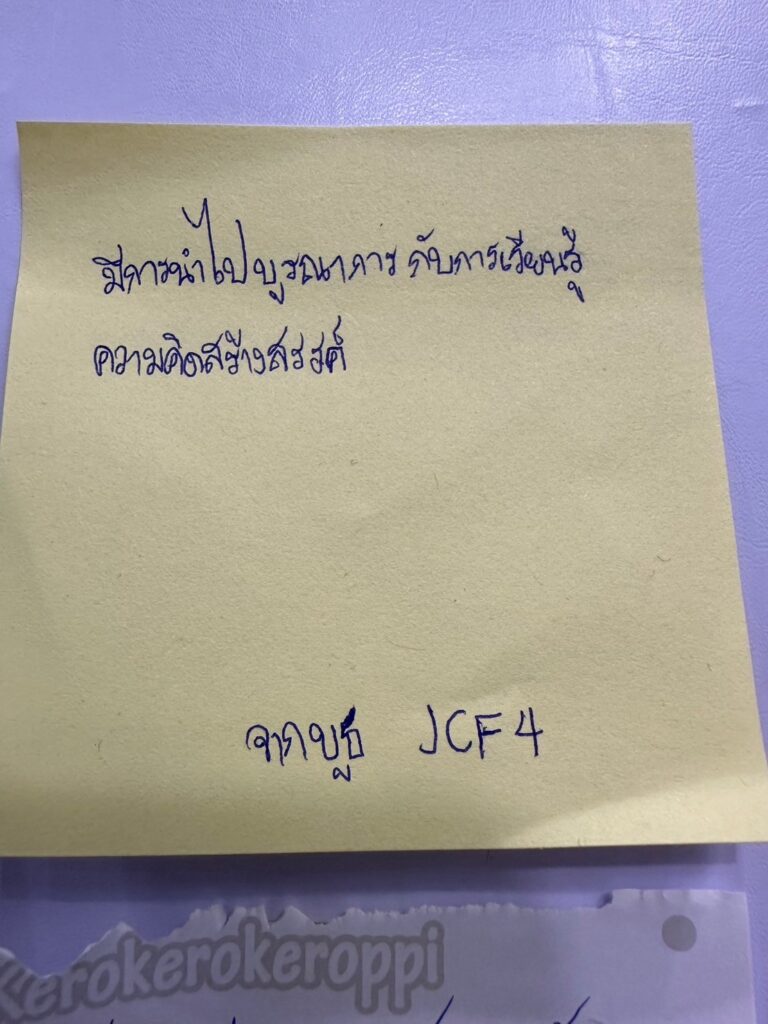 มีการนำไปบูรณาการ กับการเรียนรู้
ความคิดสร้างสรรค์
จากบูธ JCF 4
Kerokerokeroppi